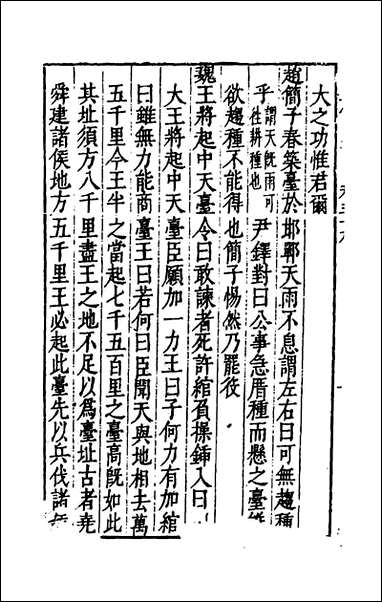 大之功惟君爾
趙簡子春築臺於邯鄲天雨不息謂左右曰可無趨種
乎謂天旣雨可往耕種也尹鐸對曰公事急厝種而懸之臺
欲趨種不能得也簡子惕然乃罷役
魏王將起中天臺令曰敢諫者死許綰負操鍤入曰
大王將起中天臺臣願加一力王曰子何力有加綰
曰雖無力能商臺王曰若何曰臣聞天與地相去萬
五千里今王半之當起七千五百里之臺高旣如此
其址須方八千里盡王之地不足以爲臺址古者堯
舜建諸侯地方五千里王必起此臺先以兵伐諸